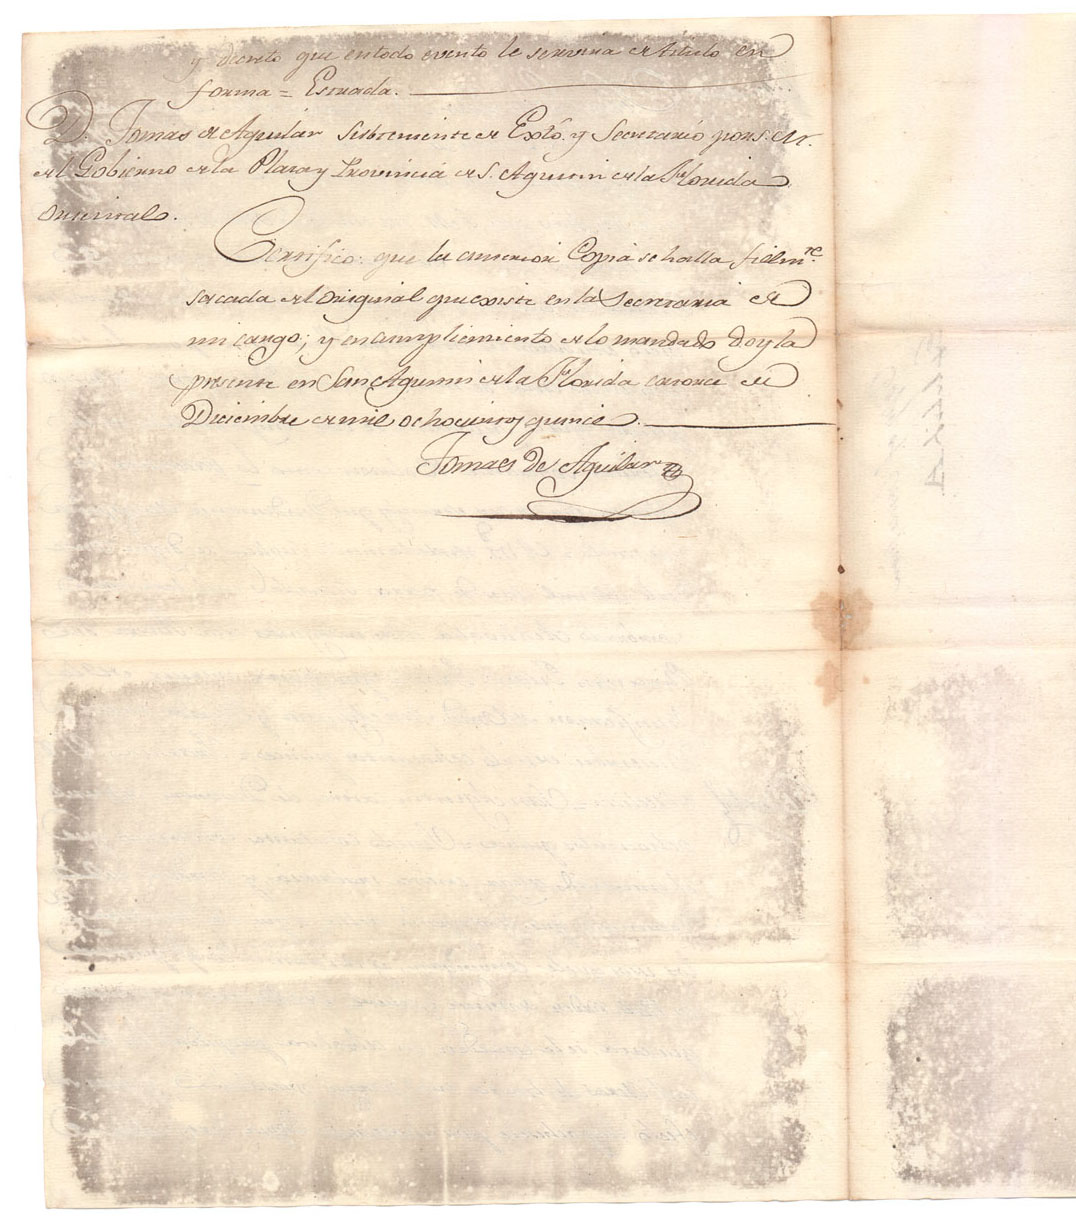 y decreto que en todo evento le servira de titulo en
forma = Estrada.
D. Tomas de Aguilar Subteniente de Exto. y Secretario por S. M.
del Gobierno de la Plaza y Provincia de S. Agustin de la Florida
Oriental.
Certifico: que la anterior Copia se halla fielmte.
sacada del original que existe en la Secretaria de
mi cargo; y en cumplimiento de lo mandado doy la
presente en San Agustin de la Florida catorce de
Diciembre de mil ochocientos quince.
Tomas de Aguilar